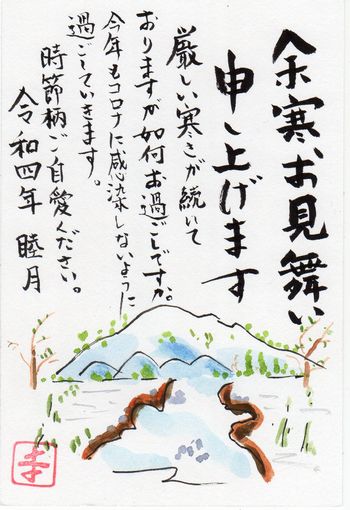 余寒、お見舞い
申し上げます
厳しい寒さが続いて
おりますが如何お過ごしですか。
今年もコロナに感染しないように
過ごしていきます。
時節柄ご自愛ください。
令和四年 睦月